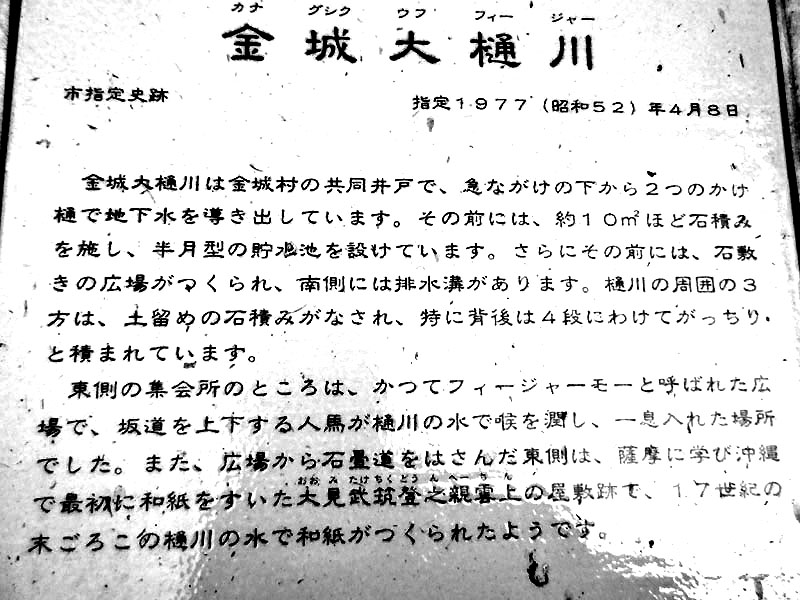 カナ グシク ウフ フィー ジャー
金城大樋川
市指定史跡
指定1977(昭和52)年4月8日
金城大樋川は金城村の共同井戸で、急ながけの下から2つのかけ
樋で地下水を導き出しています。その前には、約10㎡ほど石積み
を施し、半月型の貯水池を設けています。さらにその前には、石敷
きの広場がつくられ、南側には排水溝があります。樋川の周囲の3
方は、土留めの石積みがなされ、特に背後は4段にわけてがっちり
と積まれています。
東側の集会所のところは、かつてフィージャーモーと呼ばれた広
場で、坂道を上下する人馬が樋川の水で喉を潤し、一息入れた場所
でした。また、広場から石畳道をはさんだ東側は、薩摩に学び沖縄
おお み たけ ちく どぅ ん ぺー ち ん
で最初に和紙をすいた大見武筑登之親雲上の屋敷跡で、17世紀の
末ごろこの樋川の水で和紙がつくられたようです。